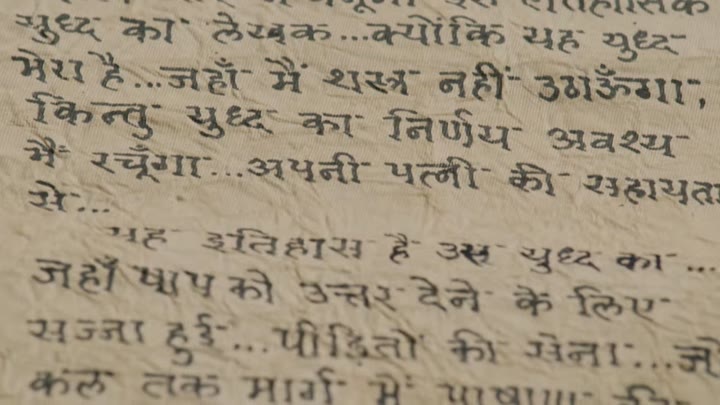 ऐतिहासिक
युध्द का लेखक...क्योंकि यह युध्द
मेरा है...जहाँ मैं शस्त्र नहीं उठाऊँगा,
किन्तु युध्द का निर्णय अवश्य
मैं रचूँगा...अपनी पत्नी की सहायता
से...
यह इतिहास है उस युध्द का...
जहाँ पाप को उत्तर देने के लिए
सज्जा हुई...पीड़ितो की सेना...जो
कल तक मार्ग में पाषाण